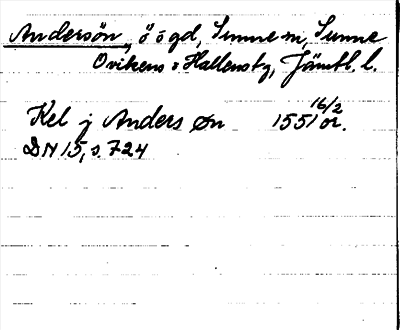 Andersön, ö o gd, Sunne sn, Sunne
Ovikens o Hallens tg, Jämtl. l.
Kel j Anders øn 1551 16/2 or.
DN 15, s. 724